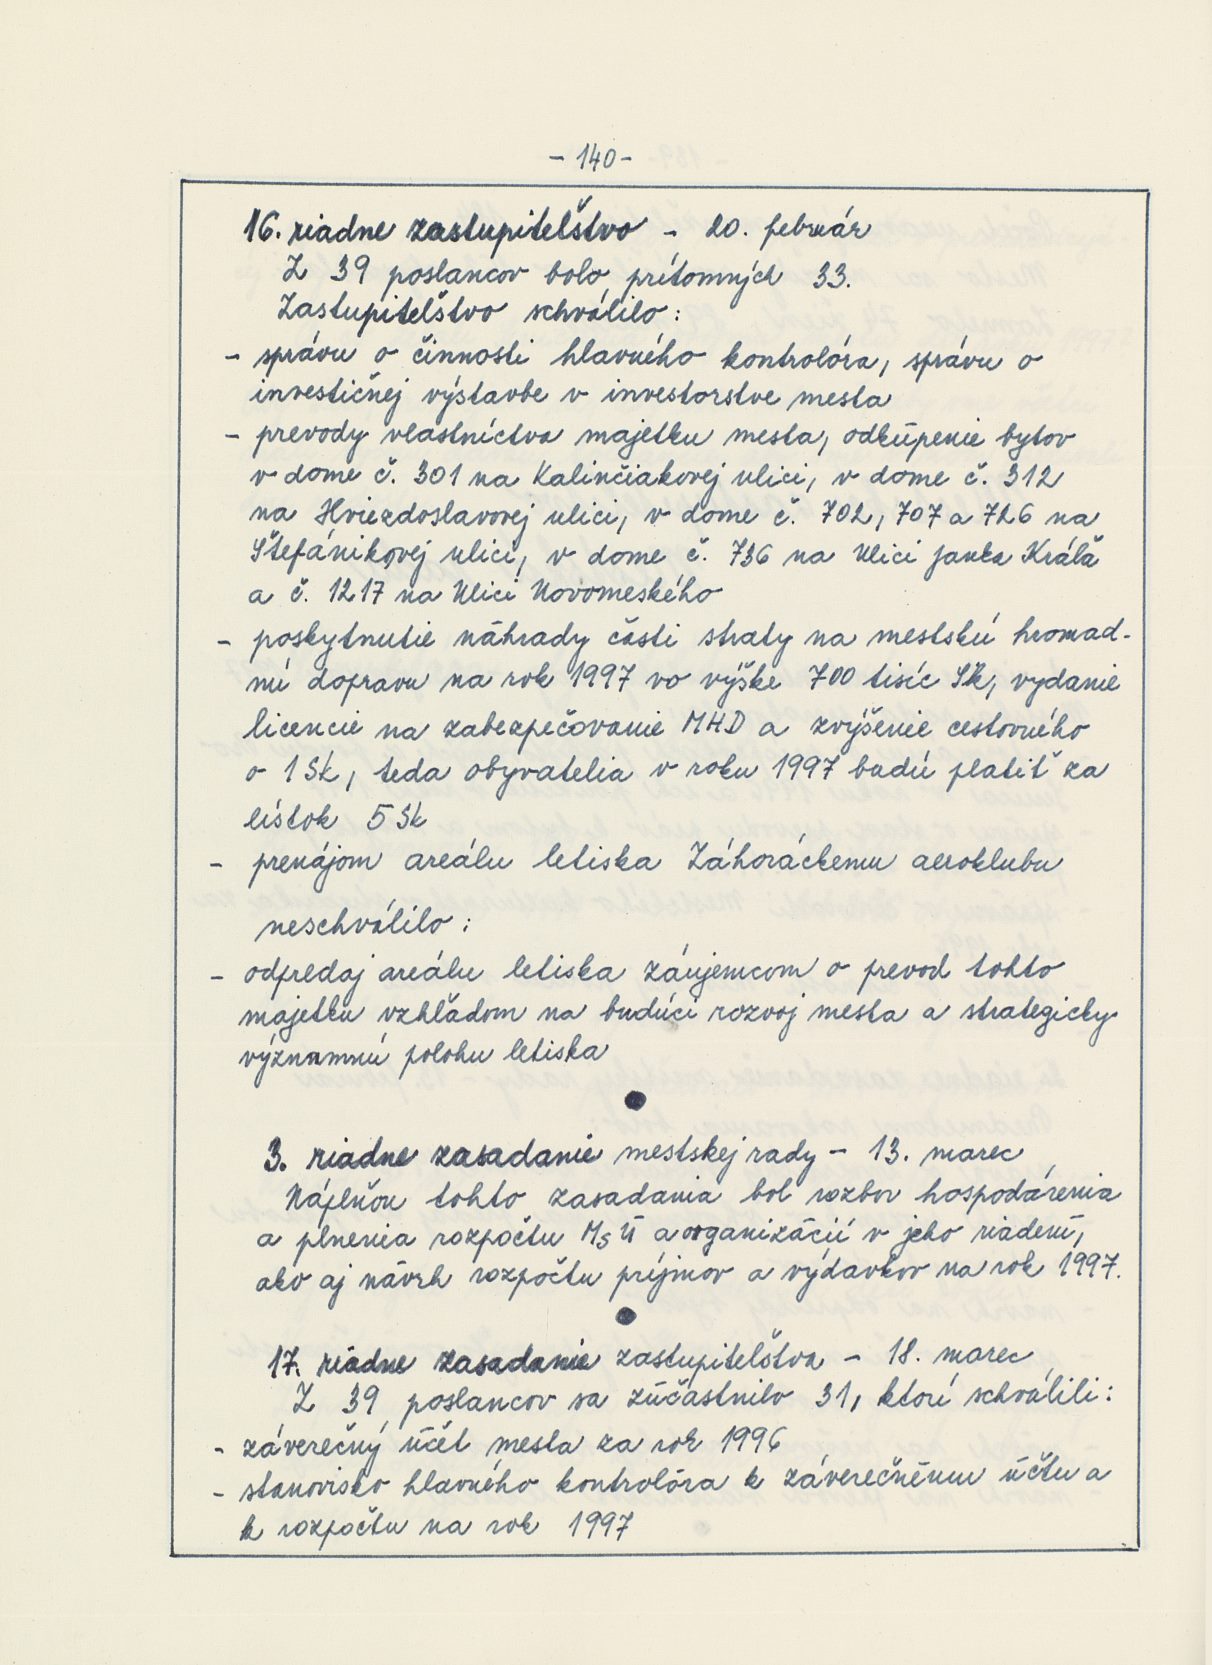 - 140 -
16. riadne zastupiteľstvo - 20. február
Z 39 poslancov bolo prítomných 33.
Zastupiteľstvo schválilo:
- správu o činnosti hlavného kontrolóra, správu o
investičnej výstavbe v investorstve mesta
- prevody vlastníctva majetku mesta, odkúpenie bytov
v dome č. 301 na Kalinčiakovej ulici, v dome č. 312
na Hviezdoslavovej ulici, v dome č. 702, 707 a 726 na
Štefánikovej ulici, v dome č. 736 na Ulici Janka Kráľa
a č. 1217 na Ulici Novomeského
- poskytnutie náhrady časti straty na mestskú hromad-
nú dopravu na rok 1997 vo výške 700 tisíc Sk, vydanie
licencie na zabezpečovanie MHD a zvýšenie cestovného
o 1 Sk, teda obyvatelia v roku 1997 budú platiť za
lístok 5 Sk
- prenájom areálu letiska Záhoráckemu aeroklubu
neschválilo:
- odpredaj areálu letiska záujemcom o prevod tohto
majetku vzhľadom na budúci rozvoj mesta a strategicky
významnú polohu letiska
3. riadne zasadanie mestskej rady - 13. marec
Náplňou tohto zasadania bol rozbor hospodárenia
a plnenia rozpočtu MsÚ a organizácií v jeho riadení,
ako aj návrh rozpočtu príjmov a výdavkov na rok 1997.
17. riadne zasadanie zastupiteľstva - 18. marec
Z 39 poslancov sa zúčastnilo 31, ktorí schválili:
- záverečný účet mesta za rok 1996
- stanovisko hlavného kontrolóra k záverečnému účtu a
k rozpočtu na rok 1997